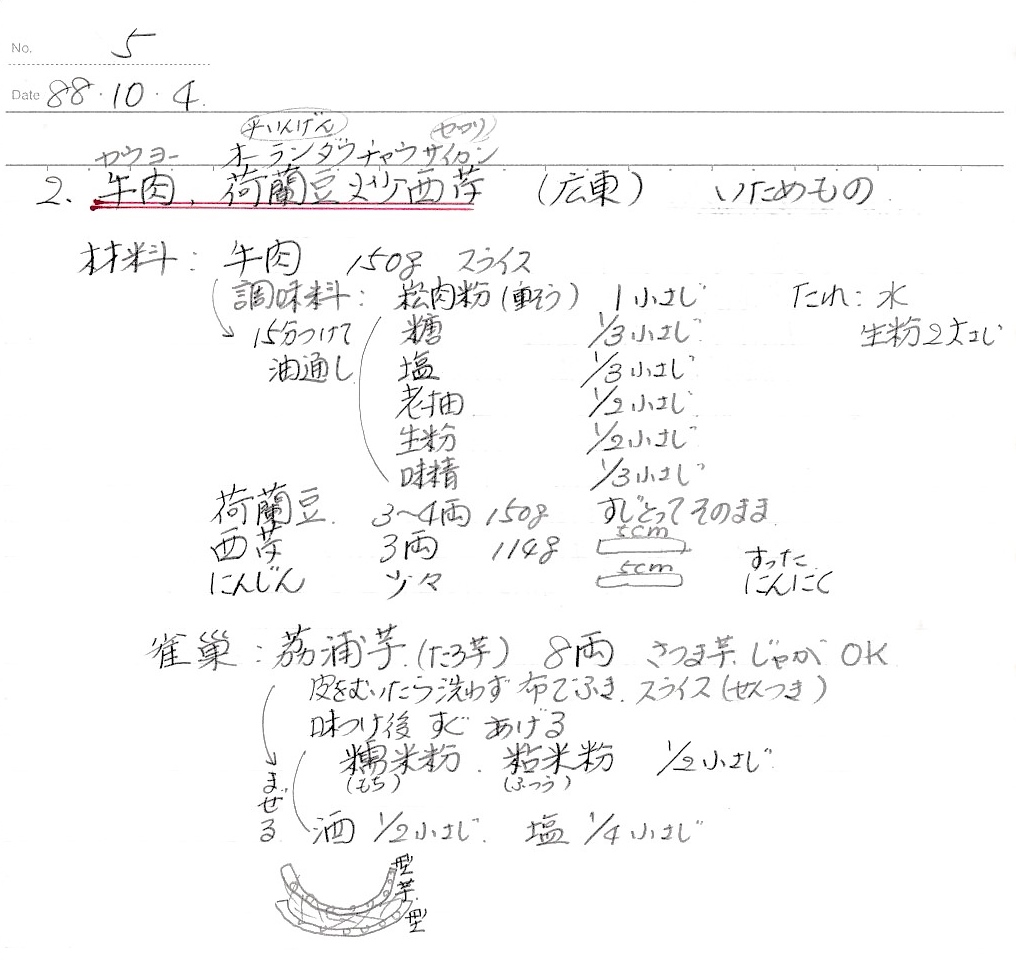 No. 5
Date 88・10・4.
平いんげん セロリ
ヤウヨー オーランダウチャウサイカン
2. 牛肉、荷蘭豆炒西芹 (広東) いためもの
材料: 牛肉 150g スライス
調味料: 松肉粉(重そう) 1小さじ たれ: 水
15分つけて 糖 1/3小さじ 生粉2大さじ
油通し 塩 1/3小さじ
老抽 1/2小さじ
生粉 1/2小さじ
味精 1/3小さじ
荷蘭豆. 3〜4両 150g すじとってそのまま
西芹 3両 114g 5cm
にんじん 少々 5cm すった にんにく
雀巣: 荔浦芋.(たろ芋) 8両 さつま芋.じゃが OK
皮をむいたら洗わず 布でふき. スライス(せんつき)
味つけ後 すぐ あげる
糯米粉. 粘米粉 1/2小さじ
(もち) (ふつう)
まぜる
酒 1/2小さじ. 塩 1/4小さじ
型
芋.
型